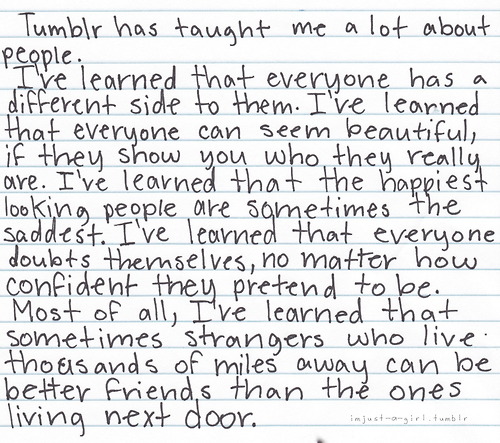 Tumblr has taught me a lot about
people.
I've learned that everyone has a
different side to them. I've learned
that everyone can seem beautiful,
if they show you who they really
are. I've learned that the happiest
looking people are sometimes the
saddest. I've learned that everyone
doubts themselves, no matter how
confident they pretend to be.
Most of all, I've learned that
sometimes strangers who live
thousands of miles away can be
better friends than the ones
living next door.
imjust-a-girl.tumblr